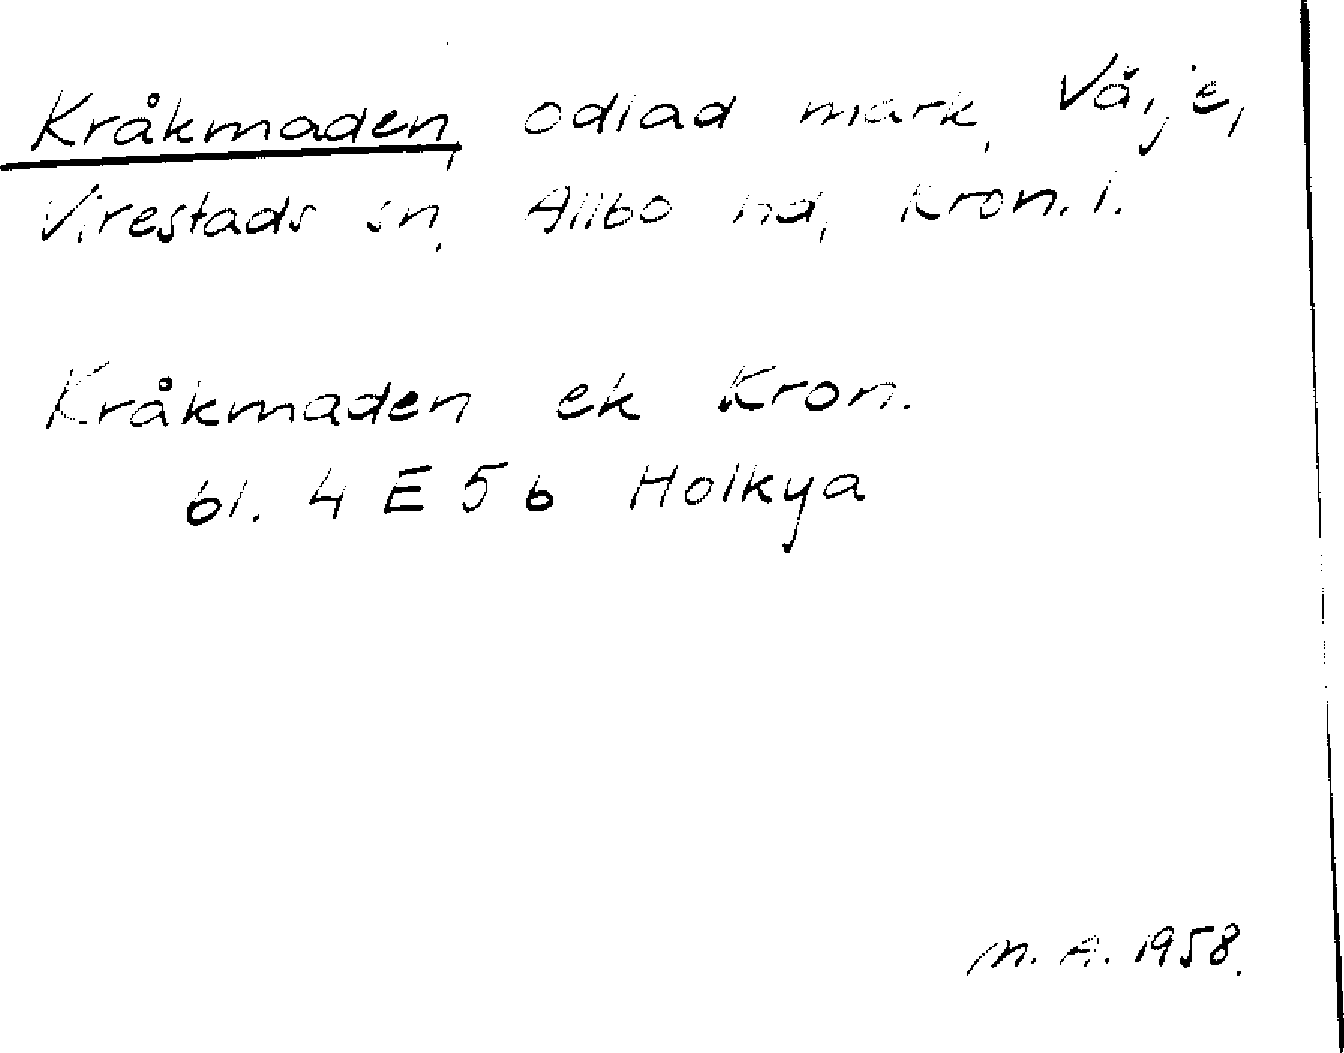 Kråkmaden, odlad mark, Välje,
Virestads sn, Allbo hd, Kron. l.
Kråkmaden ek Kron.
bl. 4 E 5 b Holkya
M. A. 1958.